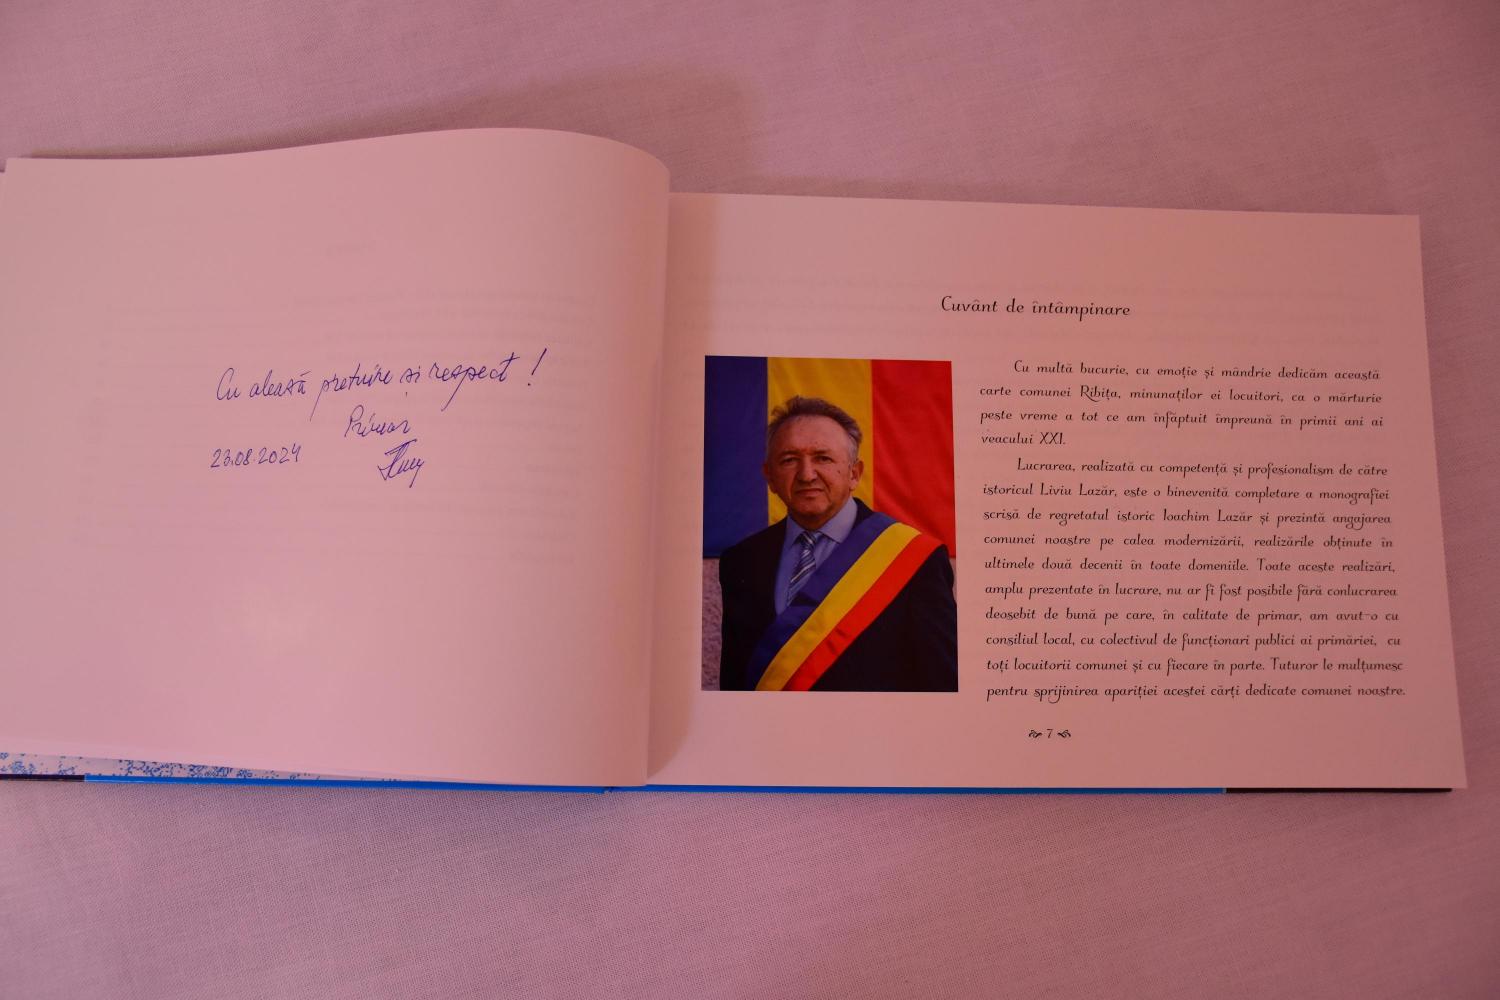 Cu aleasă prețuire și respect !
Primar
23.08.2024
Cuvânt de întâmpinare
Cu multă bucurie, cu emoție și mândrie dedicăm această
carte comunei Ribița, minunaților ei locuitori, ca o mărturie
peste vreme a tot ce am înfăptuit împreună în primii ani ai
veacului XXI.
Lucrarea, realizată cu competență și profesionalism de către
istoricul Liviu Lazăr, este o binevenită completare a monografiei
scrisă de regretatul istoric Ioachim Lazăr și prezintă angajarea
comunei noastre pe calea modernizării, realizările obținute în
ultimele două decenii în toate domeniile. Toate aceste realizări,
amplu prezentate în lucrare, nu ar fi fost posibile fără conlucrarea
deosebit de bună pe care, în calitate de primar, am avut-o cu
consiliul local, cu colectivul de funcționari publici ai primăriei, cu
toți locuitorii comunei și cu fiecare în parte. Tuturor le mulțumesc
pentru sprijinirea apariției acestei cărți dedicate comunei noastre.
7